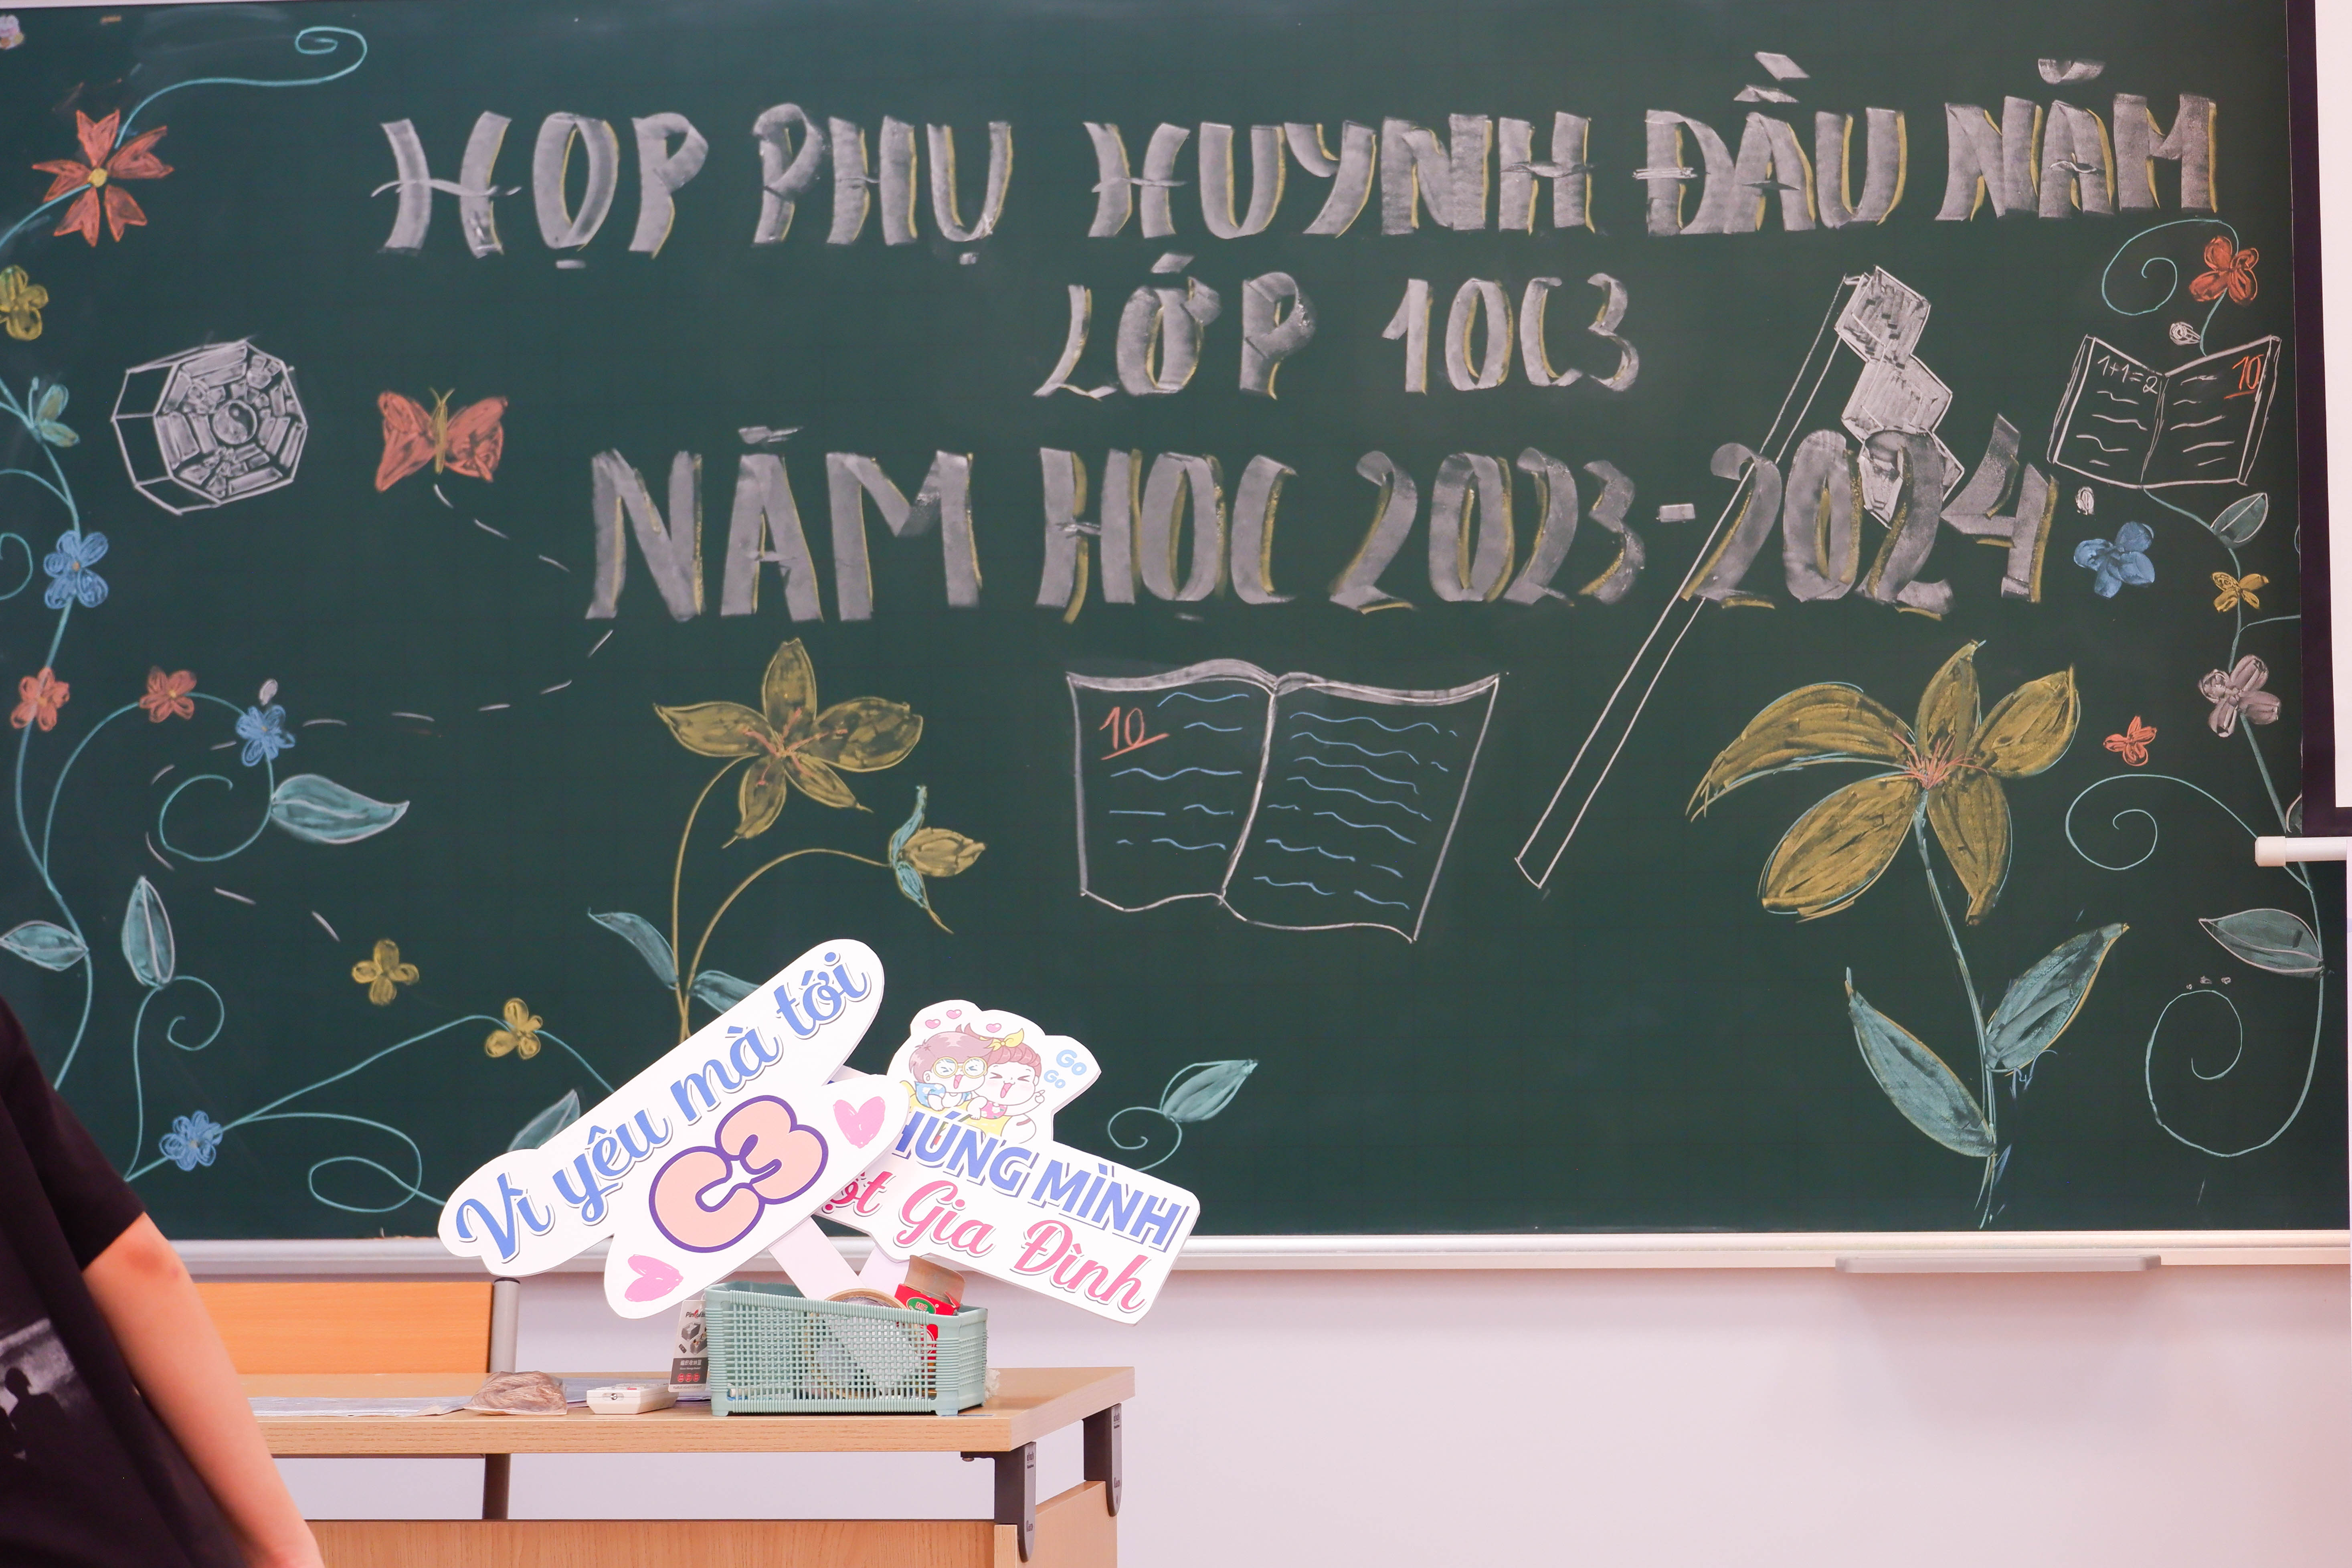 HỌP PHỤ HUYNH ĐẦU NĂM
LỚP 10C3
NĂM HỌC 2023-2024
1+1=2
10
10
Vì yêu mà tới
C3
GO
GO
HÚNG MÌNH
ột Gia Đình